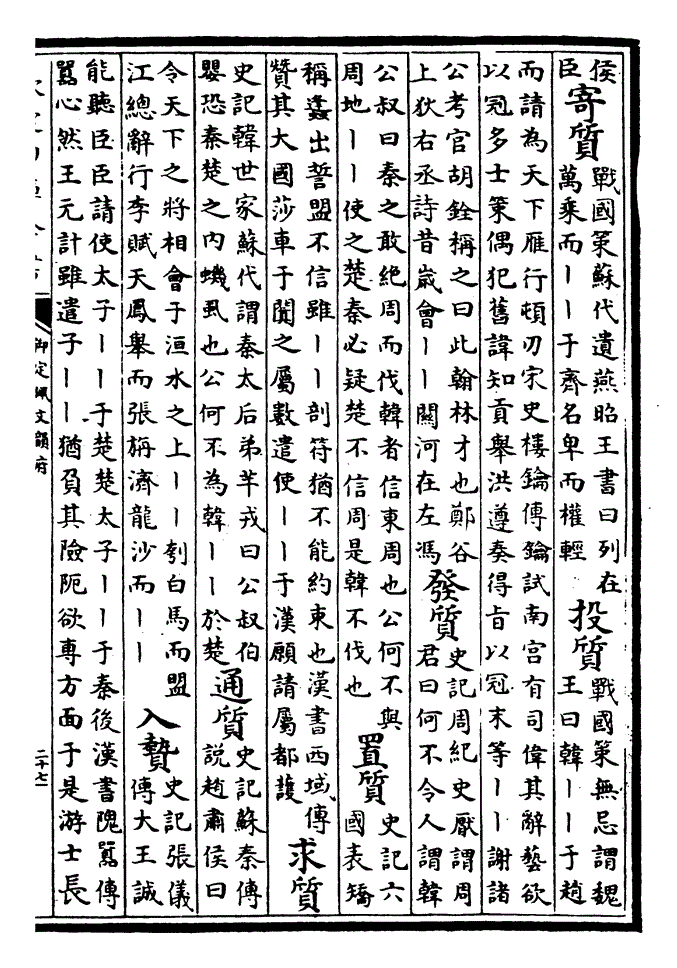 侯
臣
寄質
戰國策蘇代遺燕昭王書曰列在
萬乘而丨丨于齊名卑而權輕
投質
戰國策無忌謂魏
王曰韓丨丨于趙
而請為天下雁行頓刃宋史樓鑰傳鑰試南宮有司偉其辭藝欲
以冠多士策偶犯舊諱知貢舉洪遵奏得旨以冠末等丨丨謝諸
公考官胡銓稱之曰此翰林才也鄭谷
上狄右丞詩昔歲會丨丨關河在左馮
發質
史記周紀史厭謂周
君曰何不令人謂韓
公叔曰秦之敢絕周而伐韓者信東周也公何不與
周地丨丨使之楚秦必疑楚不信周是韓不伐也
置質
史記六
國表矯
稱蠭出誓盟不信雖丨丨剖符猶不能約束也漢書西域傳
贊其大國莎車于闐之屬數遣使丨丨于漢願請屬都護
求質
史記韓世家蘇代謂秦太后弟芈戎曰公叔伯
嬰恐秦楚之内蟣虱也公何不為韓丨丨於楚
通質
史記蘇秦傳
說趙肅侯曰
令天下之將相會于洹水之上丨丨刳白馬而盟
江總辭行李賦天鳳舉而張旃濟龍沙而丨丨
入贄
史記張儀
傳大王誠
能聽臣臣請使太子丨丨于楚楚太子丨丨于秦後漢書隗囂傳
囂心然王元計雖遣子丨丨猶負其險阨欲專方面于是游士長
御定佩文韻府
二十七